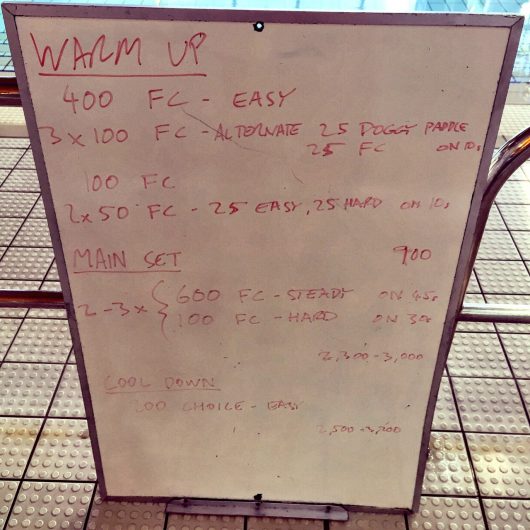 WARM UP
400 FC - EASY
3 x 100 FC - ALTERNATE 25 DOGGY PADDLE
25 FC ON 10s
100 FC
2 x 50 FC - 25 EASY, 25 HARD ON 10s
MAIN SET 900
2 - 3 x { 600 FC - STEADY ON 45s
100 FC - HARD ON 30s
2,300 - 3,000
COOL DOWN
200 CHOICE - EASY
2,500 - 3,200